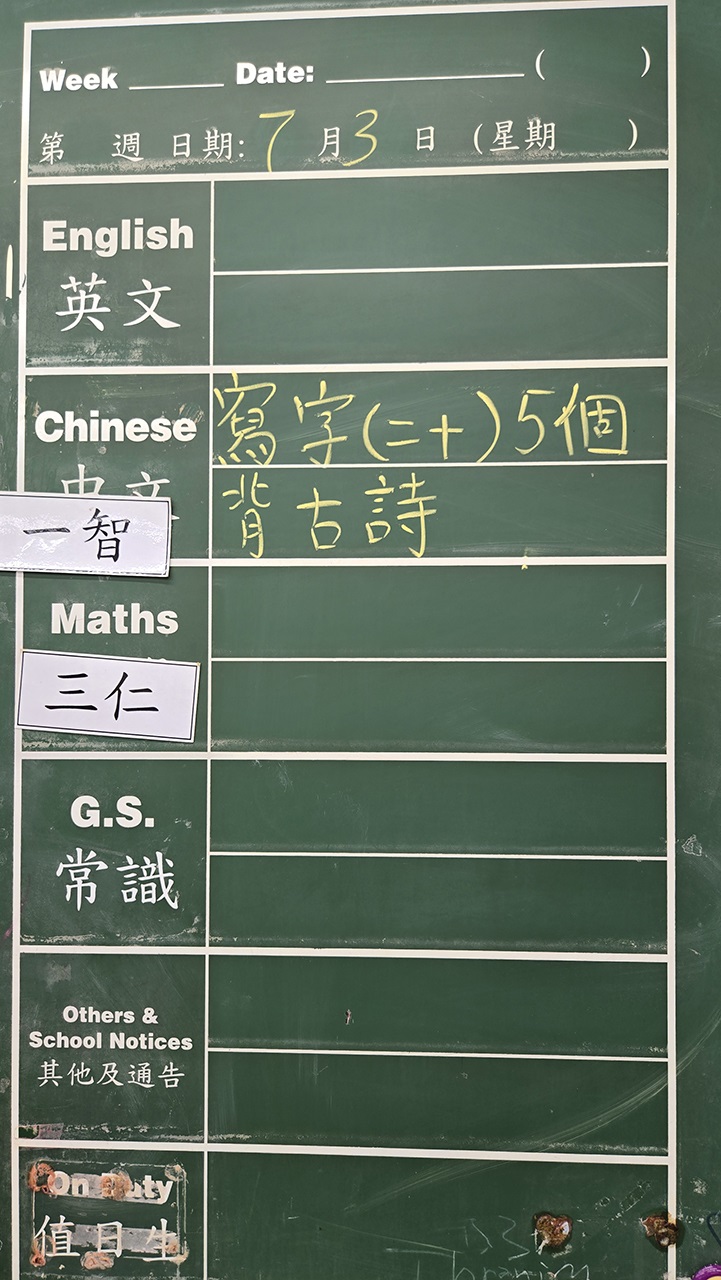 Week ______ Date: ____________ ( )
第 週 日期: 7 月 3 日 (星期 )
English
英文
Chinese 寫字(二十)5個
中文 背古詩
一智
Maths
三仁
G.S.
常識
Others &
School Notices
其他及通告
On Duty
值日生